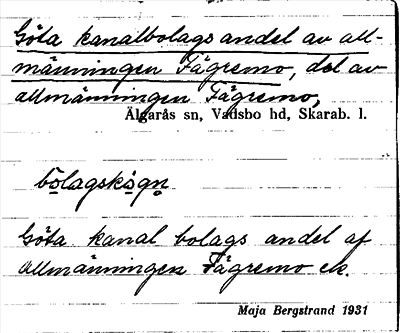 Göta kanalbolags andel av all-
männingen Fägremo, del av
allmänningen Fägremo,
Älgarås sn, Vadsbo hd, Skarab. l.
bolagskogn
Göta kanal bolags andel af
allmänningen Fägremo ek.
Maja Bergstrand 1931